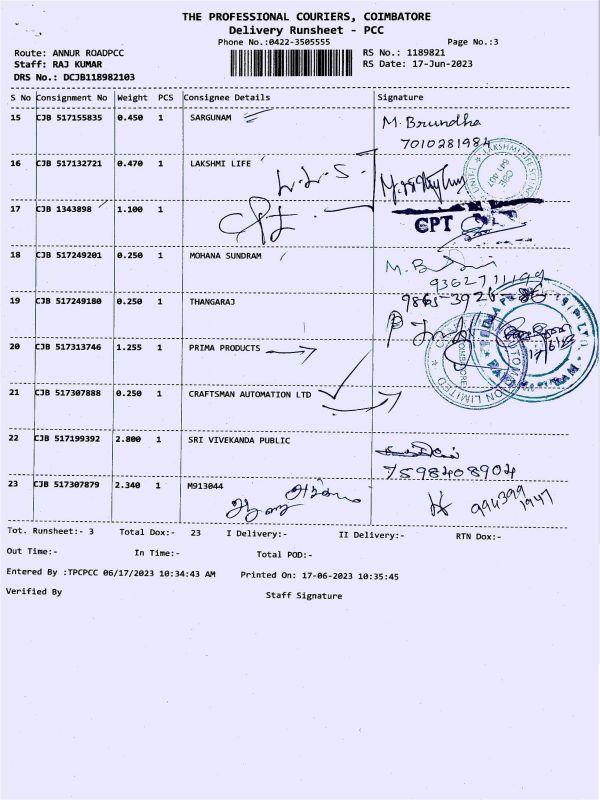 THE PROFESSIONAL COURIERS, COIMBATORE
Delivery Runsheet - PCC
Phone No.:0422-3505555 Page No.:3
Route: ANNUR ROADPCC RS No.: 1189821
Staff: RAJ KUMAR RS Date: 17-Jun-2023
DRS No.: DCJB118982103
S No Consignment No Weight PCS Consignee Details Signature
15 CJB 517155835 0.450 1 SARGUNAM M. Brundha
7010281984
16 CJB 517132721 0.470 1 LAKSHMI LIFE
17 CJB 1343898 1.100 1
CPT
18 CJB 517249201 0.250 1 MOHANA SUNDRAM
9362711199
19 CJB 517249180 0.250 1 THANGARAJ
20 CJB 517313746 1.255 1 PRIMA PRODUCTS
21 CJB 517307888 0.250 1 CRAFTSMAN AUTOMATION LTD
22 CJB 517199392 2.800 1 SRI VIVEKANDA PUBLIC
7598408904
23 CJB 517307879 2.340 1 M913044
994399
1947
Tot. Runsheet:- 3 Total Dox:- 23 I Delivery:- II Delivery:- RTN Dox:-
Out Time:- In Time:- Total POD:-
Entered By :TPCPCC 06/17/2023 10:34:43 AM Printed On: 17-06-2023 10:35:45
Verified By Staff Signature